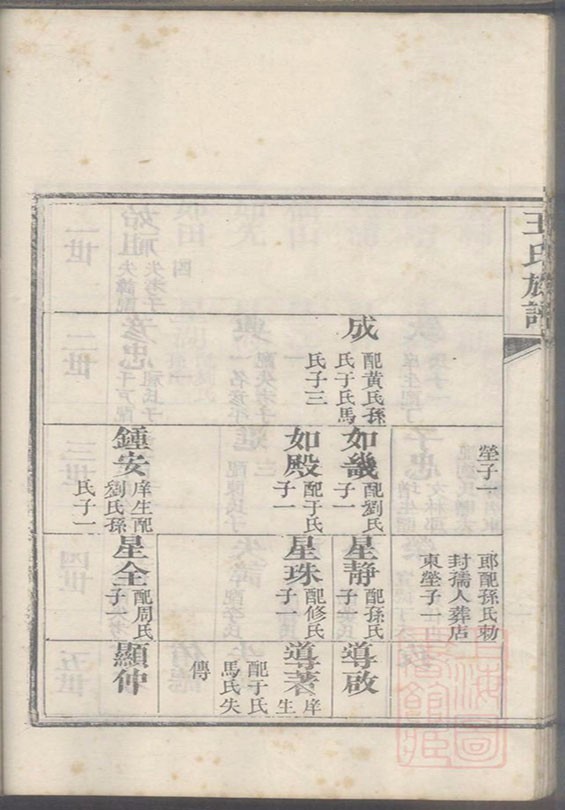 王氏族譜
塋子一
郎配孫氏勅
封孺人葬店
東塋子一
成
配黃氏孫
氏于氏馬
氏子三
如畿
配劉氏
子一
星靜
配孫氏
子一
導啟
如殿
配于氏
子一
星珠
配修氏
子一
導著
庠
生
配于氏
馬氏失
傳
鍾安
庠生配
劉氏孫
氏子一
星全
配周氏
子一
顯仲